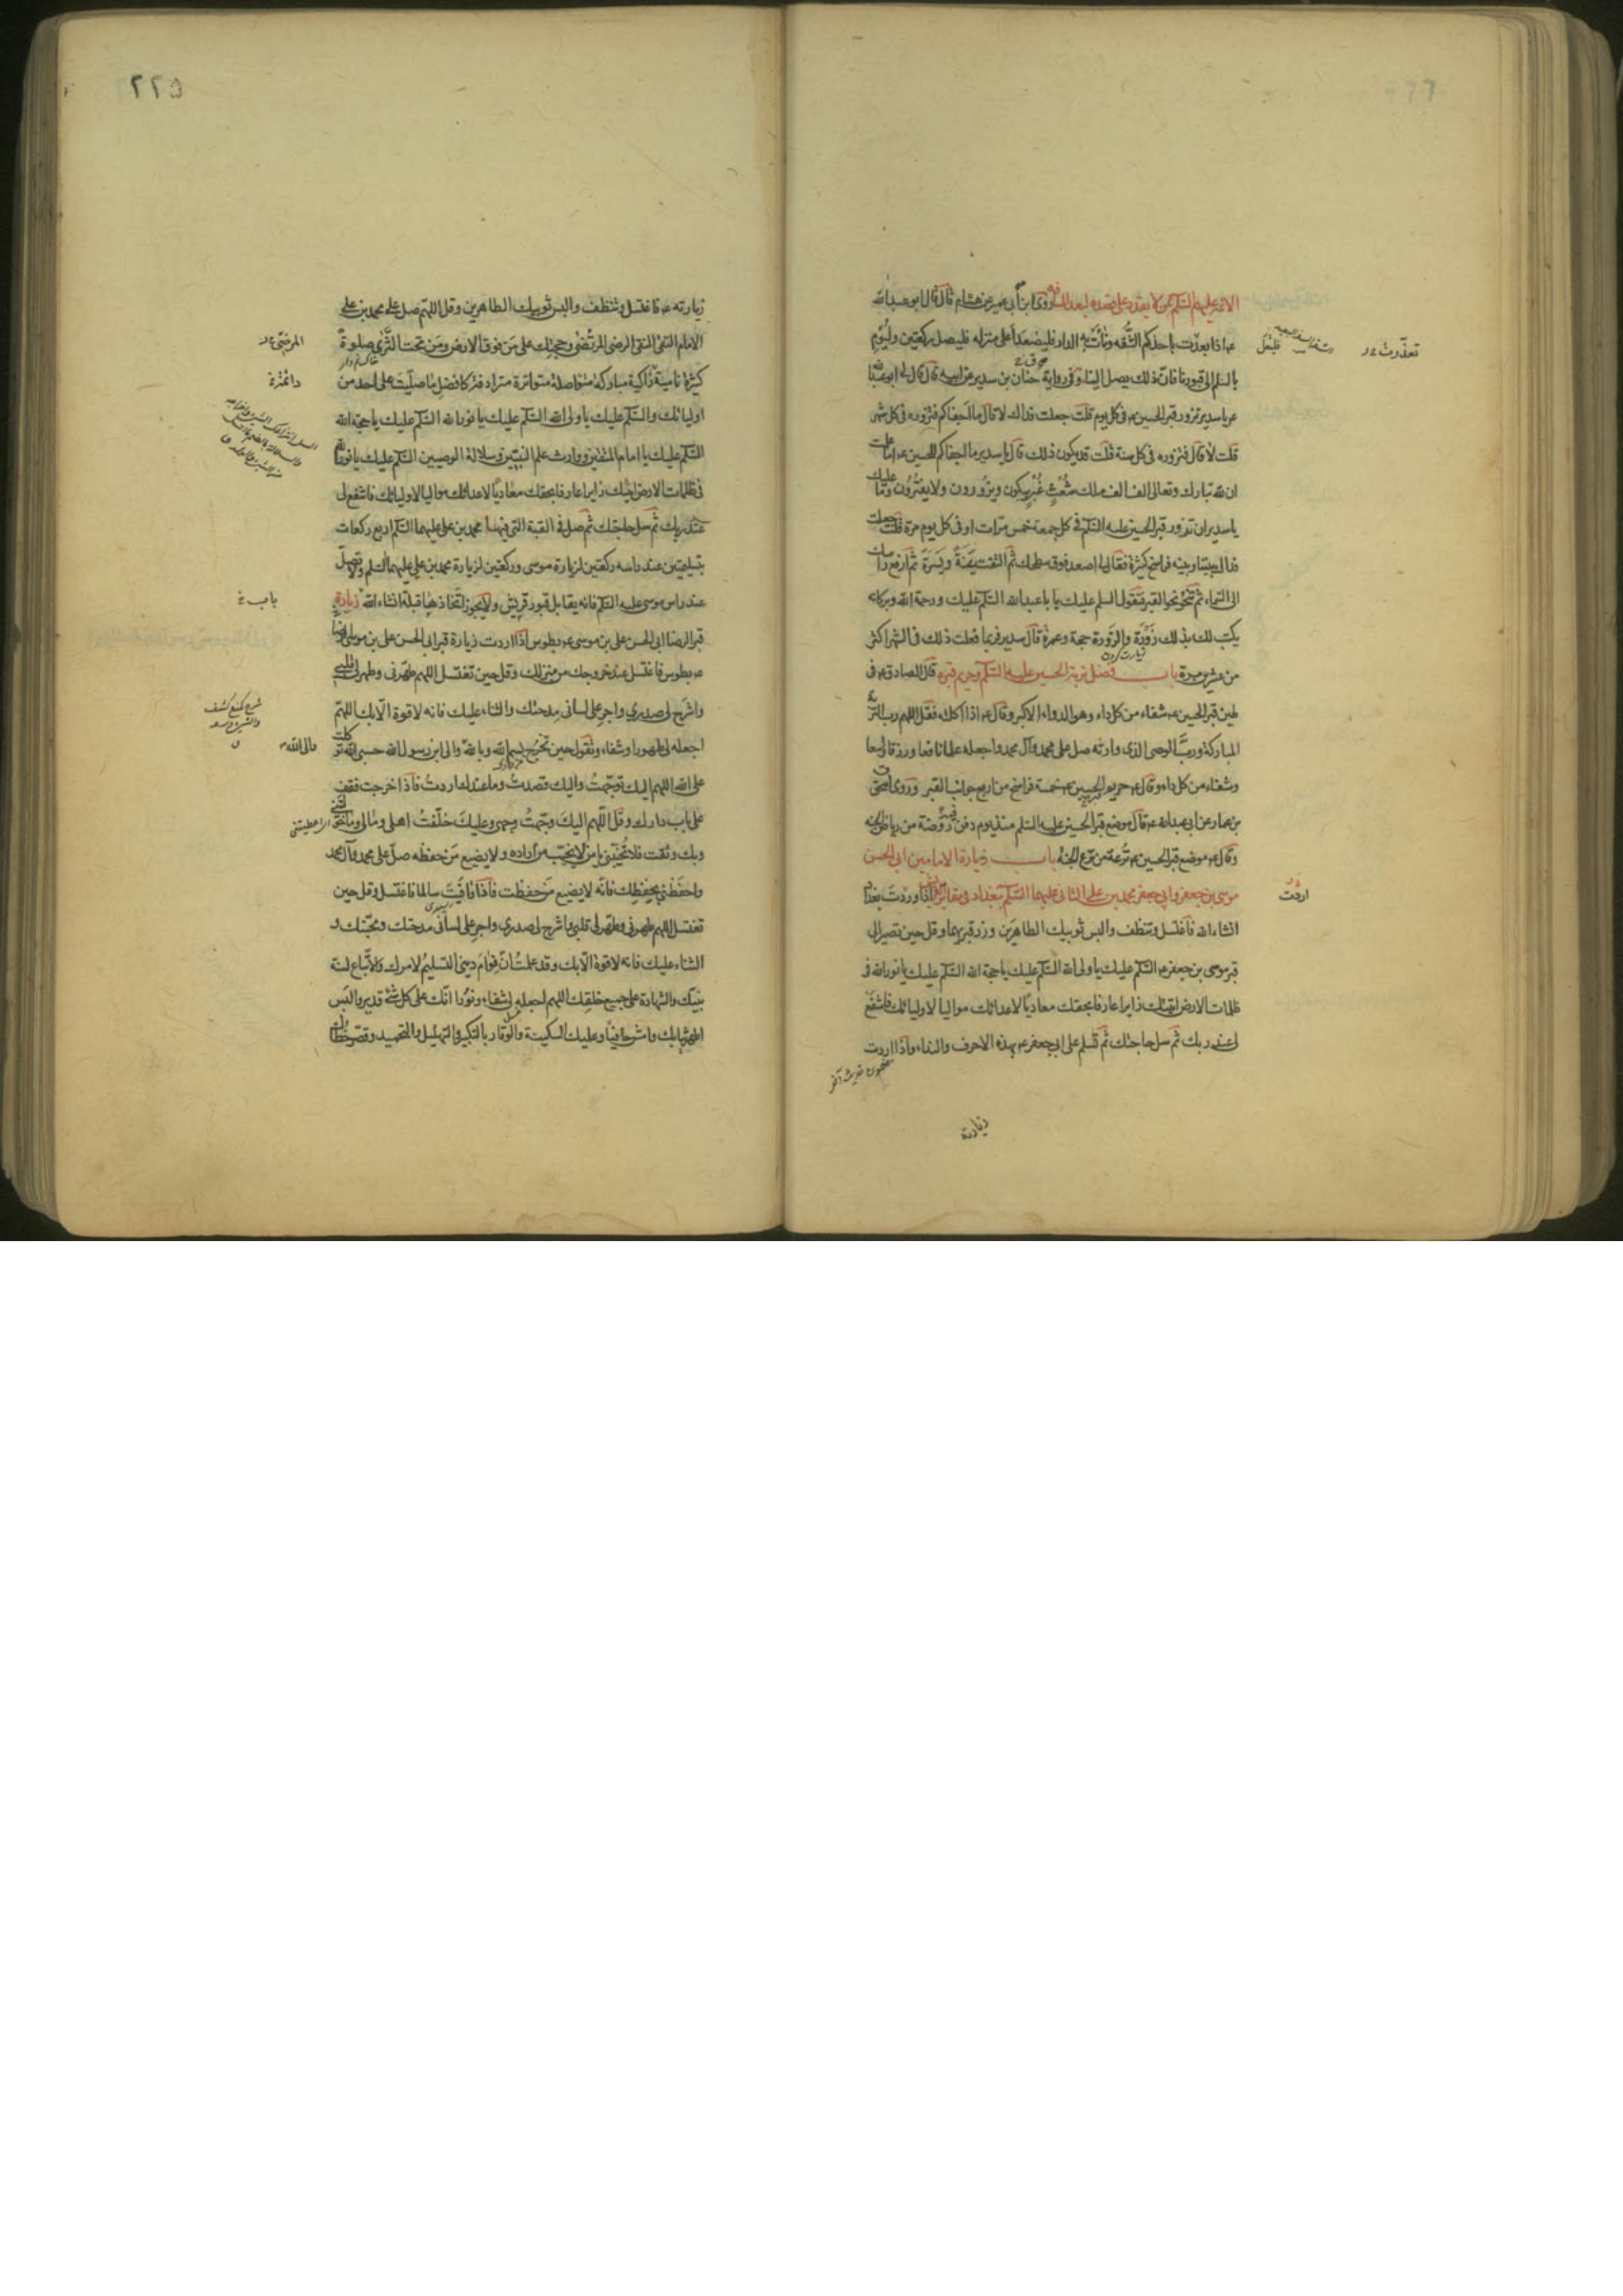 الائمة عليهم السلم لمن لا يقدر على قصده لبعد المسافة روى ابن ابى عمير عن هشام قال قال ابو عبد الله
ع اذا بعدت باحدكم الشقه ونأت به الدار فليصعد أعلى منزله فليصل ركعتين وليؤم
بالسلم الى قبورنا فان ذلك يصل الينا وفى رواية حنان بن سدير عن ابيه قال قال لى ابو عبد الله
ع يا سدير تزور قبر الحسين ع فى كل يوم قلت جعلت فداك لا قال ما اجفاكم فتزوره فى كل شهر
قلت لا قال فتزوره فى كل سنة قلت قد يكون ذلك قال يا سدير ما اجفاكم للحسين ع اما علمت
ان لله تبارك وتعالى الف الف ملك شعث غبر يبكون ويزورون ولا يفترون وما عليك
يا سدير ان تزور قبر الحسين عليه السلم فى كل جمعة خمس مرات او فى كل يوم مرة قلت جعلت
فداك بيننا وبينه فراسخ كثيرة فقال لى اصعد فوق سطحك ثم التفت يمنة ويسرة ثم ارفع راسك
الى السماء ثم تنحو نحو القبر فتقول السلم عليك يا با عبد الله السلم عليك ورحمة الله وبركاته
يكتب لك بذلك زورة والزورة حجة وعمرة قال سدير فربما فعلت ذلك فى الشهر اكثر
من عشرين مرة باب فضل تربة الحسين عليه السلم وحريم قبره قال الصادق ع فى
طين قبر الحسين ع شفاء من كل داء وهو الدواء الاكبر وقال ع اذا اكلته فقل اللهم رب التربة
المباركة ورب الوصى الذى وارته صل على محمد وآل محمد واجعله علما نافعا ورزقا واسعا
وشفاء من كل داء وقال ع حريم الحسين ع خمسة فراسخ من اربع جوانب القبر وروى اسحق
بن عمار عن ابى عبد الله ع قال موضع قبر الحسين عليه السلم منذ يوم دفن فيه روضة من رياض الجنه
وقال ع موضع قبر الحسين ع ترعة من ترع الجنه باب زيارة الامامين ابى الحسن
موسى بن جعفر وابى جعفر محمد بن على الثانى عليهما السلم ببغداد فى مقابر قريش اذا وردت بغداد
انشاء الله فاغتسل وتنظف والبس ثوبيك الطاهرين وزر قبريهما وقل حين تصير الى
قبر موسى بن جعفر ع السلم عليك يا ولى الله السلم عليك يا حجة الله السلم عليك يا نور الله فى
ظلمات الارض اتيتك زايرا عارفا بحقك معاديا لاعدائك مواليا لاوليائك فاشفع
لى عند ربك ثم سل حاجتك ثم تسلم على ابى جعفر ع بهذه الاحرف والبداء واذا اردت
زيارته
تعذرت
فليعل
اردت
٢٢٥
زيارته ع فاغتسل وتنظف والبس ثوبيك الطاهرين وقل اللهم صل على محمد بن على
الامام التقى النقى الرضى المرتضى وحجتك على من فوق الارض ومن تحت الثرى صلوة
كثيرة نامية زاكية مباركة متواصلة متواترة مترادفة كافضل ما صليت على احد من
اوليائك والسلم عليك يا ولى الله السلم عليك يا نور الله السلم عليك يا حجة الله
السلم عليك يا امام المتقين ووارث علم النبيين وسلالة الوصيين السلم عليك يا نور الله
فى ظلمات الارض اتيتك زايرا عارفا بحقك معاديا لاعدائك مواليا لاوليائك فاشفع لى
عند ربك ثم سل حاجتك ثم صل فى القبة التى فيها محمد بن على عليهما السلم اربع ركعات
بتسليمتين عند راسه ركعتين لزيارة موسى وركعتين لزيارة محمد بن على عليهما السلم ولا تصل
عند راس موسى عليه السلم فانه يقابل قبور قريش ولا يجوز اتخاذها قبلة انشاء الله زيارة
قبر الرضا ابى الحسن على بن موسى ع بطوس اذا اردت زيارة قبر ابى الحسن على بن موسى الرضا
ع بطوس فاغتسل عند خروجك من منزلك وقل حين تغتسل اللهم طهرنى وطهر لى قلبى
واشرح لى صدرى واجر على لسانى مدحتك والثناء عليك فانه لا قوة الا بك اللهم
اجعله لى طهورا وشفاء وتقول حين تخرج بسم الله وبالله والى ابن رسول الله حسبى الله توكلت
على الله اللهم اليك توجهت واليك قصدت وما عندك اردت فاذا خرجت فقف
على باب دارك وقل اللهم اليك وجهت وجهى وعليك خلفت اهلى ومالى وما خولتنى
وبك وثقت فلا تخيبنى يا من لا يخيب من اراده ولا يضيع من حفظه صل على محمد وآل محمد
واحفظنى بحفظك فانه لا يضيع من حفظت فاذا وافيت سالما فاغتسل وقل حين
تغتسل اللهم طهرنى وطهر لى قلبى واشرح لى صدرى واجر على لسانى مدحتك ومحبتك و
الثناء عليك فانه لا قوة الا بك وقد علمت ان قوام دينى التسليم لامرك والاتباع لسنة
نبيك والشهادة على جميع خلقك اللهم اجعله لى شفاء ونورا انك على كل شئ قدير والبس
اطهر ثيابك وامش حافيا وعليك السكينة والوقار بالتكبير والتهليل والتحميد وقصر خطاك
دائمة
باب
والى الله
اعطيتنى